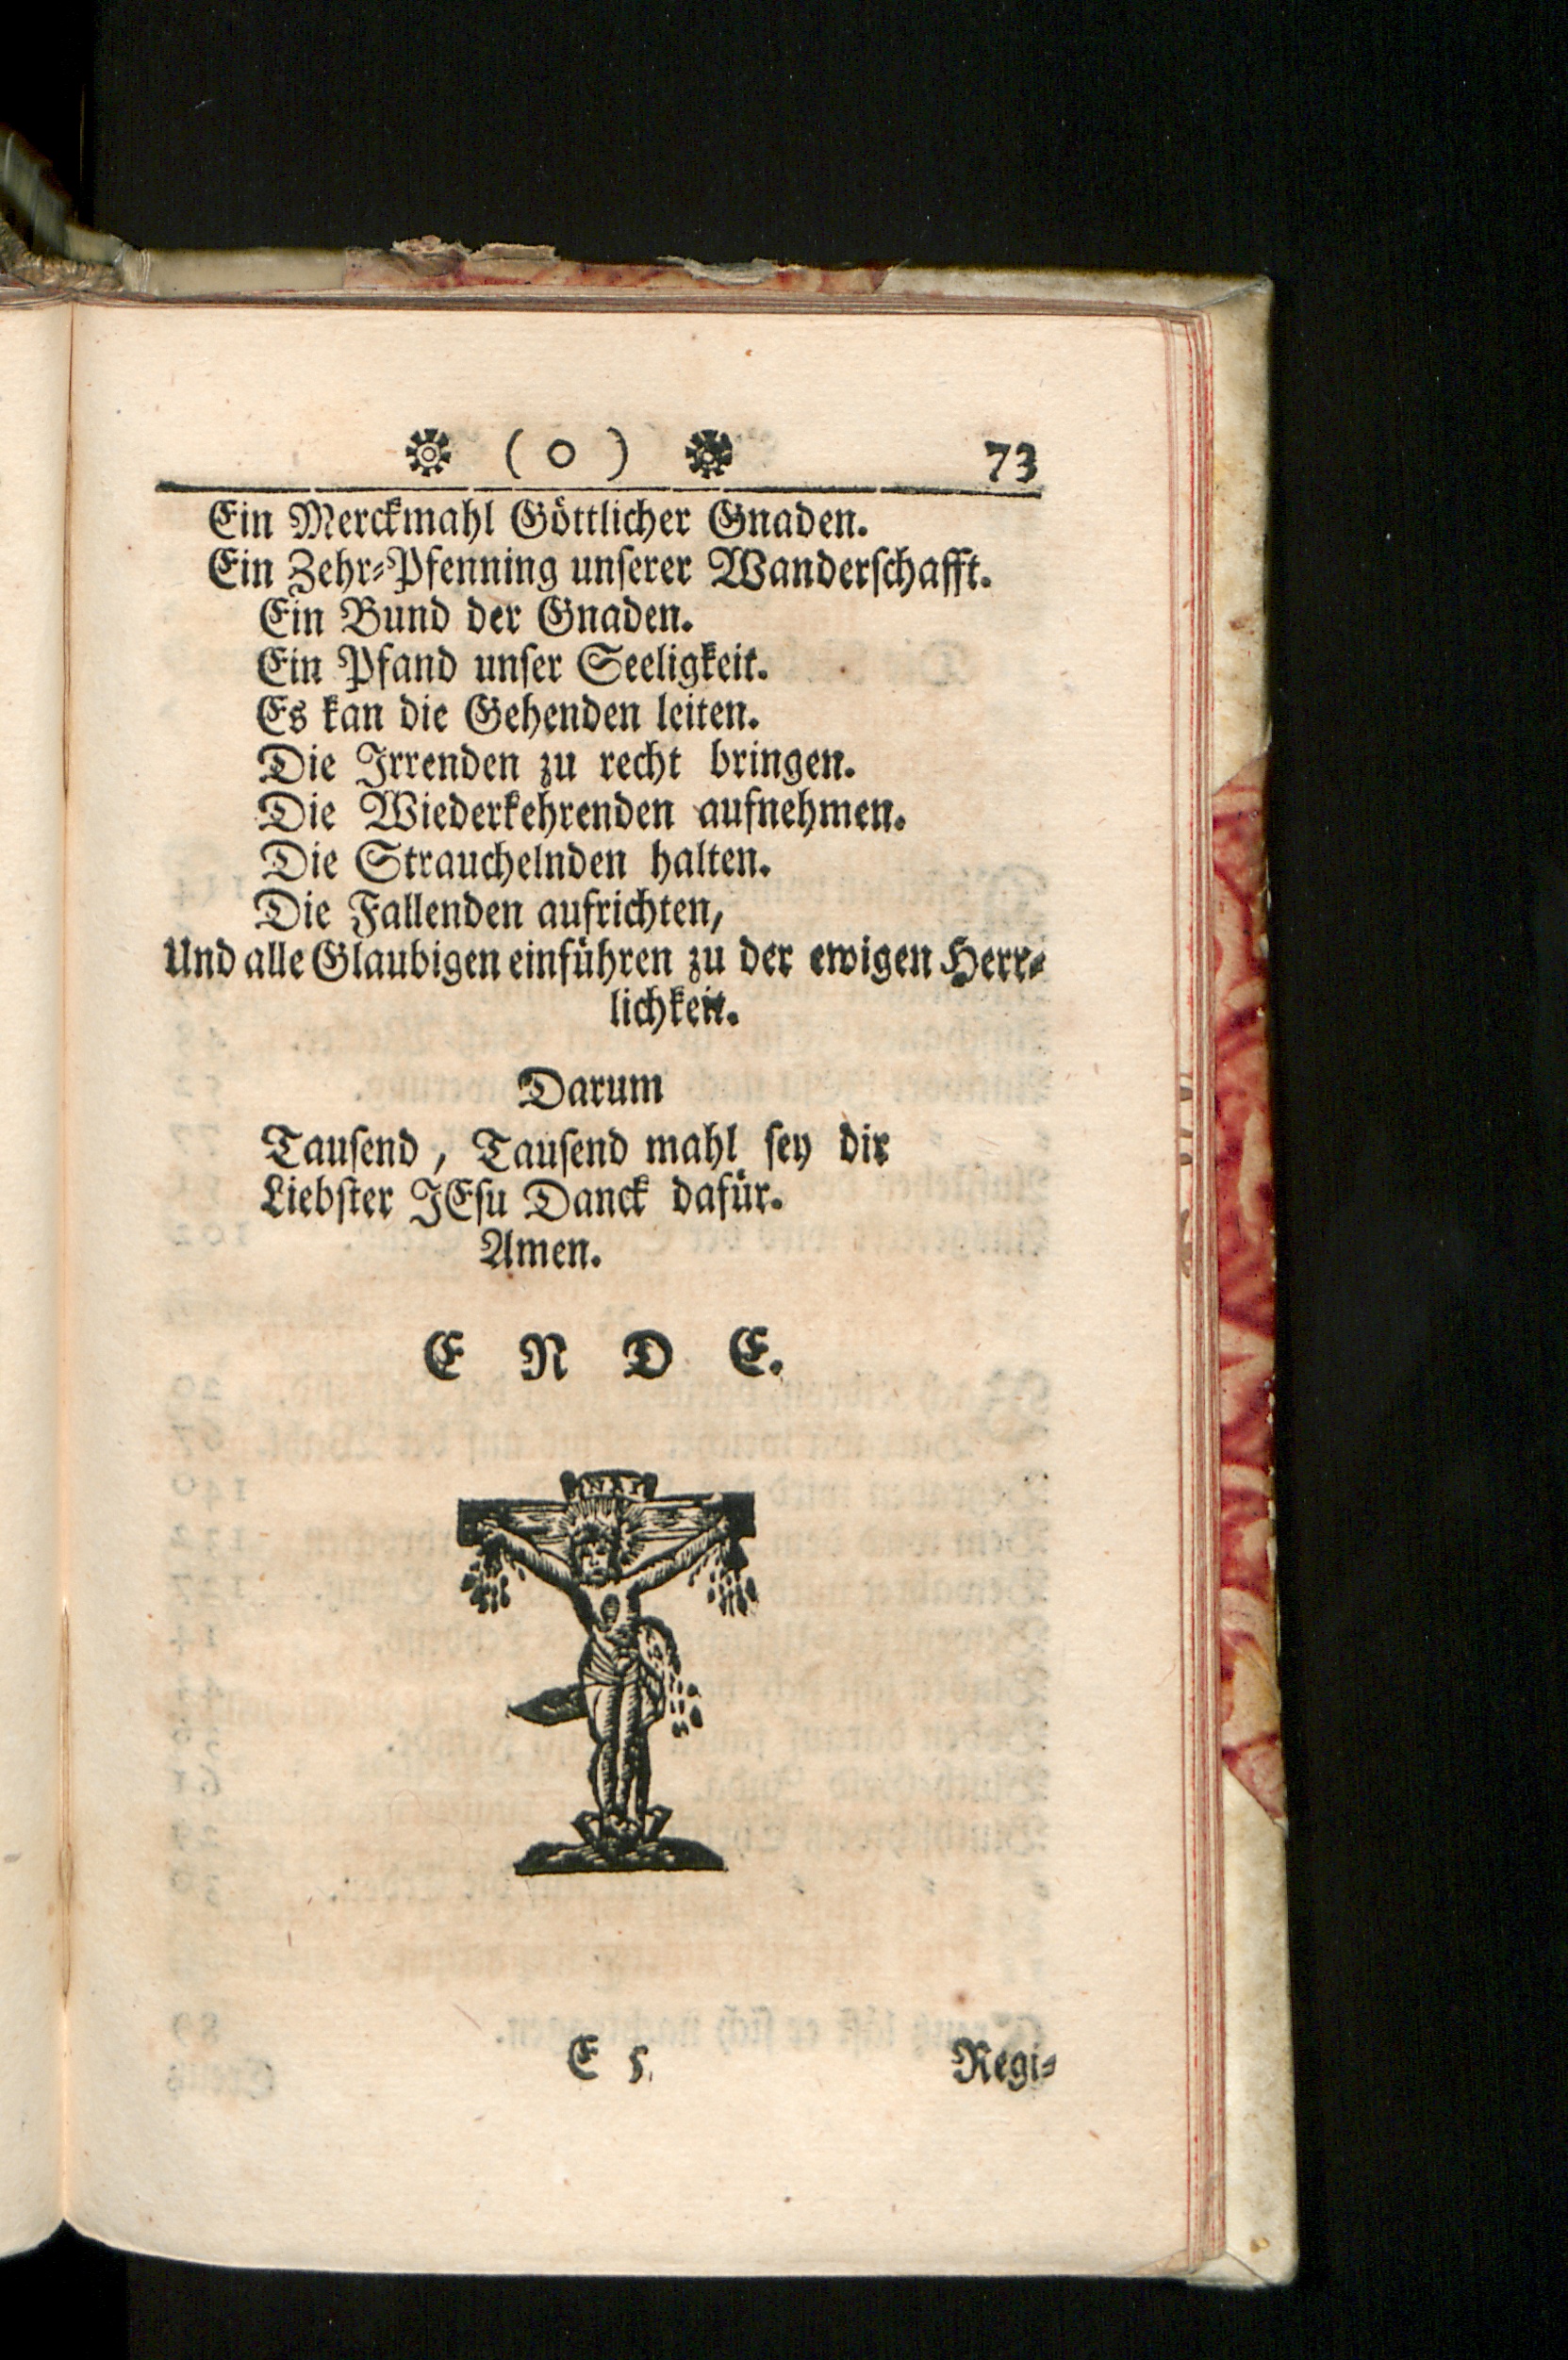 ( o ) 73
Ein Merckmahl Göttlicher Gnaden.
Ein Zehr⸗Pfenning unſerer Wanderſchafft.
Ein Bund der Gnaden.
Ein Pfand unſer Seeligkeit.
Es kan die Gehenden leiten.
Die Irrenden zu recht bringen.
Die Wiederkehrenden aufnehmen.
Die Strauchelnden halten.
Die Fallenden aufrichten,
Und alle Glaubigen einführen zu der ewigen Herr⸗
lichkeit.
Darum
Tauſend, Tauſend mahl ſey dir
Liebſter JEſu Danck dafür.
Amen.
E N D E.
INRI
E 5. Regi⸗